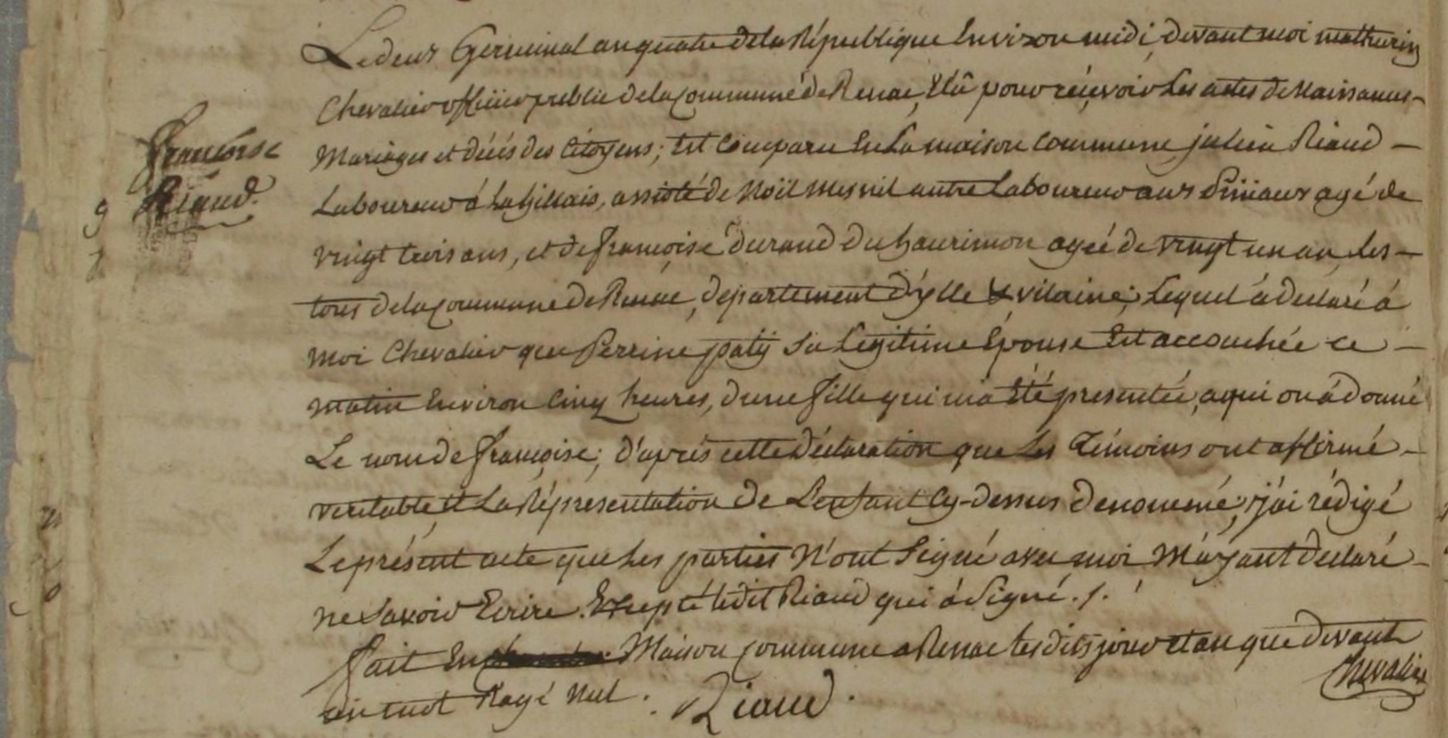 Le deux Germinal an quatre de la République Environ midi devant moi mathurin
Chevalier officier public de la Commune de Renac, Elû pour réçevoir Les actes de Naissances
Mariages et décés des Citoyens; Est Comparu En La maison Commune julien Riaud
françoise
Riaud.
Laboureur á La hillais, assisté de Noël Mesnil autre Laboureur aux agé de
vingt trois ans, et de françoise durand du agée de vingt un an, Les
tous de la Commune de Renac, département d'ylle & vilaine; Lequel á declaré á
moi Chevalier que Perrine paty Sa Légitime Épouse Est accouchée ce
matin Environ Cinq heures, d'une fille qui m'a Été presentée, a qui on á donné
Le nom de françoise; D'aprés cette déclaration que Les Témoins ont affirmé
veritable Et La Réprésentation de L'enfant Cy-dessus denommé, j'ai rédigé
Le présent acte que Les parties N'ont Signé avec moi M'ayant declaré
ne Savoir Ecrire. Excepté ledit Riaud qui á Signé ./.
fait En Maison Commune a Renac les dits jour et an que devant
un mot Rayé Nul. Riaud. Chevalier